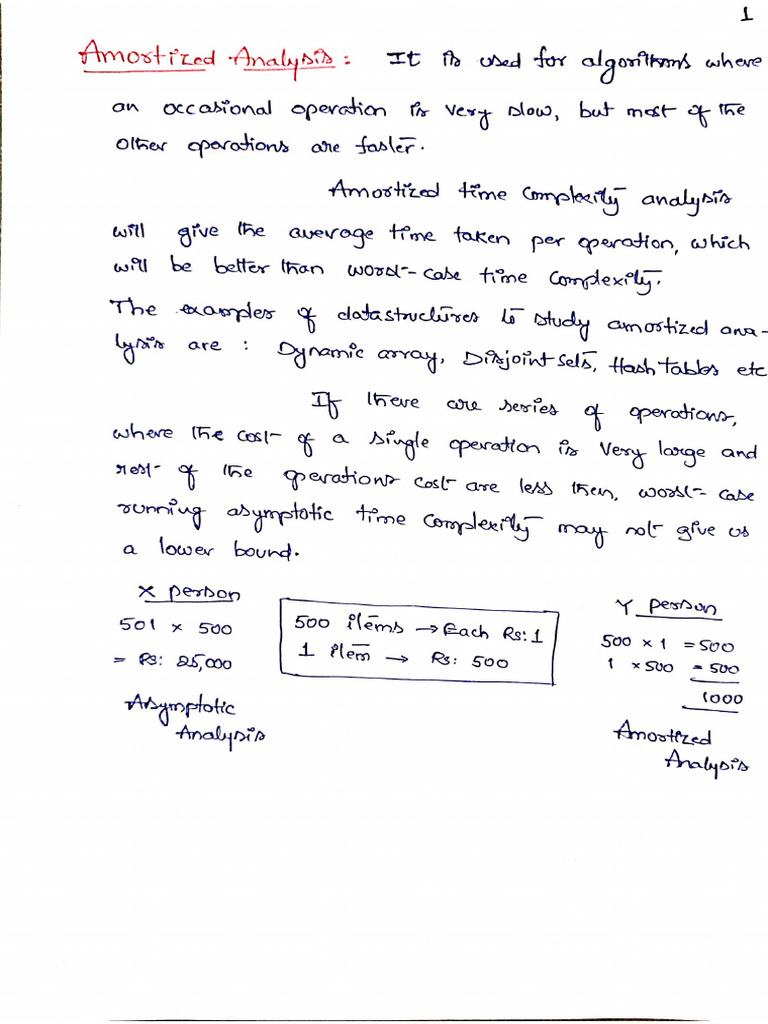 1
Amortized Analysis: It is used for algorithms where
an occasional operation is very slow, but most of the
other operations are faster.
Amortized time complexity analysis
will give the average time taken per operation, which
will be better than worst-case time complexity.
The examples of datastructures to study amortized ana-
lysis are: Dynamic array, Disjoint sets, Hash tables etc
If there are series of operations,
where the cost of a single operation is very large and
rest of the operations cost are less then, worst-case
running asymptotic time complexity may not give us
a lower bound.
X person
501 x 500
= Rs: 25,000
Asymptotic
Analysis
500 items → Each Rs: 1
1 item → Rs: 500
Y person
500 x 1 = 500
1 x 500 = 500
1000
Amortized
Analysis